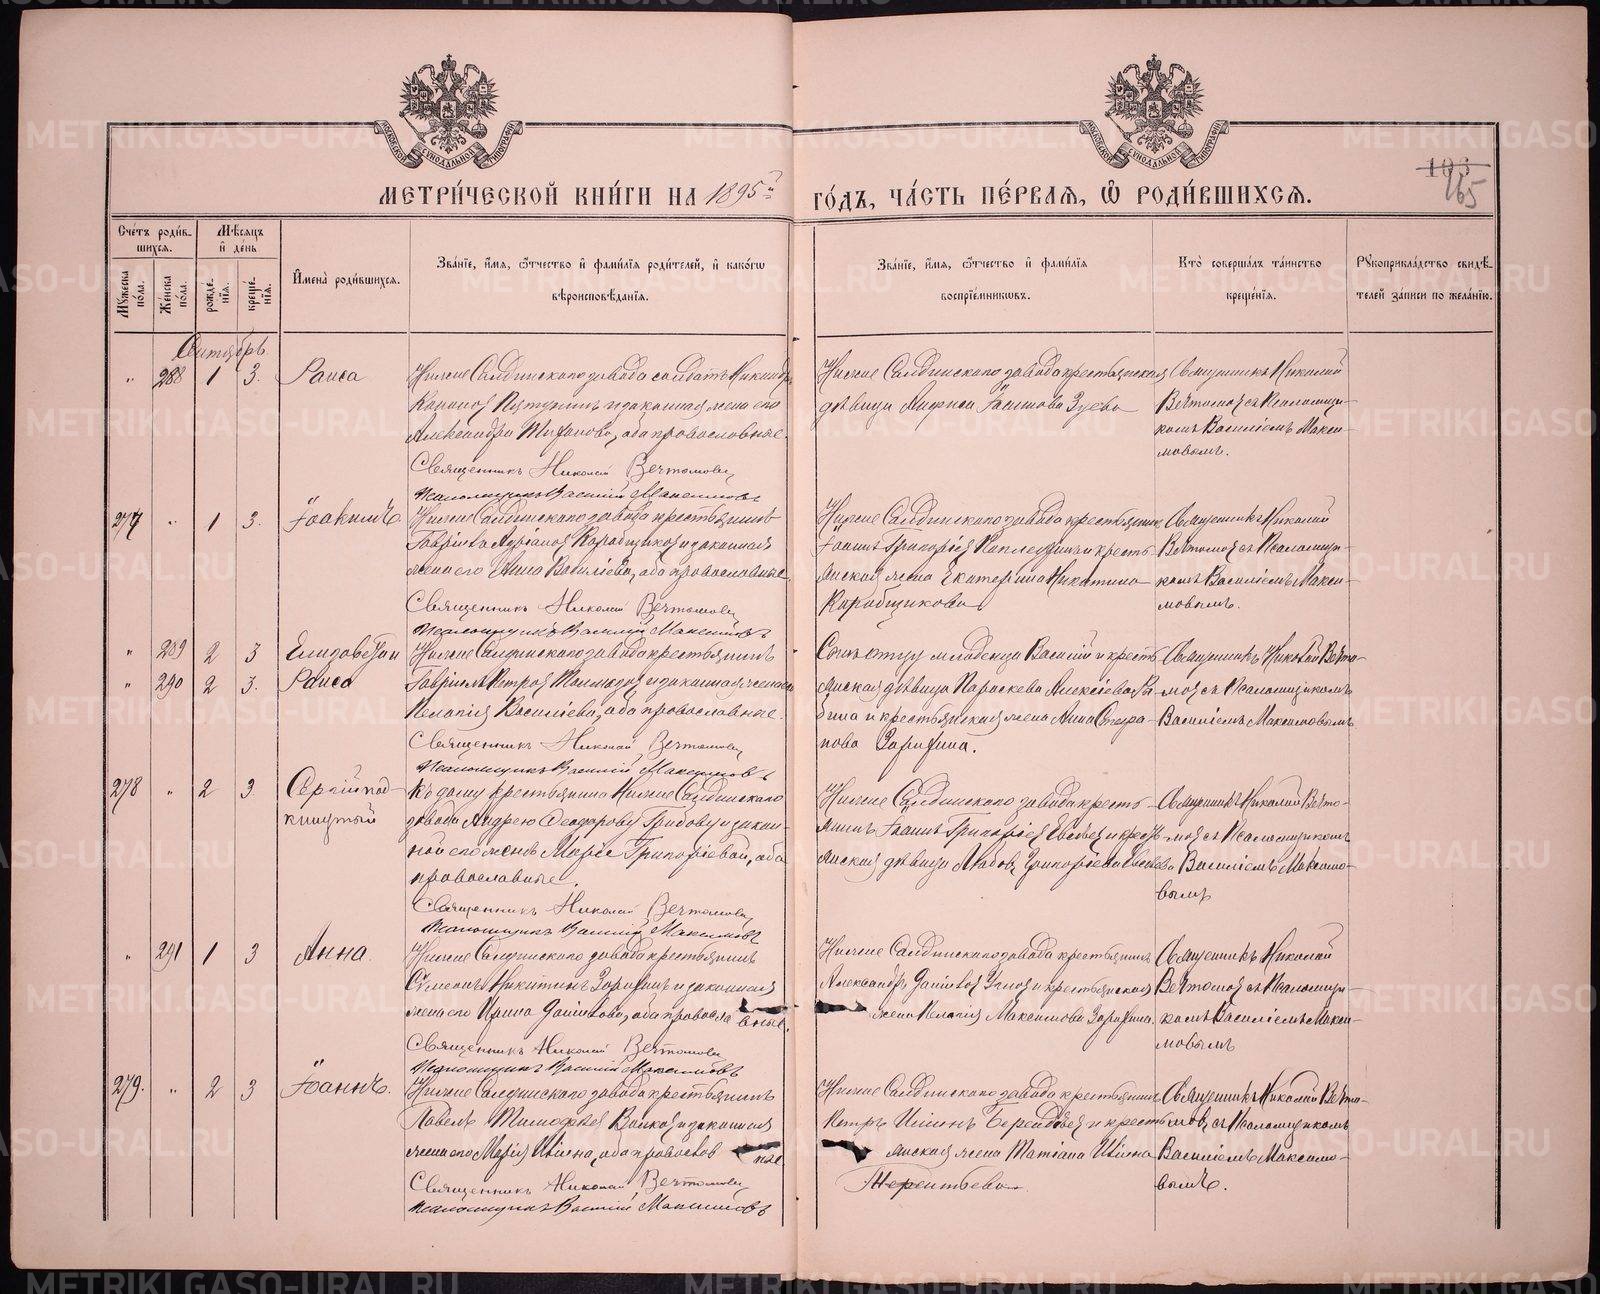 МЕТРИ́ЧЕСКОЙ КНИ́ГИ НА 1895й ГО́ДЪ, ЧА́СТЬ ПЕ́РВАЯ, Ѽ РОДИ́ВШИХСЯ.
103
165
Сче́тъ роди́вшихся.
Мѣ́сяцъ и҆ де́нь
Мꙋ́жеска по́ла.
Же́нска по́ла.
рожде́нїѧ.
креще́нїѧ.
И҆мена̀ роди́вшихся.
Зва́нїе, и҆́мѧ, ѻ҆́тчество и҆ фами́лїѧ роди́телей, и҆ како́гѡ
вѣроисповѣ́данїѧ.
Зва́нїе, и҆́мѧ, ѻ҆́тчество и҆ фами́лїѧ
воспрїе́мникѡвъ.
Кто̀ соверша́лъ та́инство
креще́нїѧ.
Рꙋкоприкла́дство свидѣ́телей за́писи по жела́нїю.
Октябрь
" 288 1 3. Раиса
Нижне Салдинскаго завода солдатъ Никандръ
законная жена его
Александра, оба православные.
Священникъ Николай Вечтомовъ
Псаломщикъ Василій Максимовъ
Нижне Салдинскаго завода крестьянская
дѣвица Зуева
Священникъ Николай
Вечтомовъ съ Псаломщи-
комъ Василіемъ Макси-
мовымъ.
277 " 1 3. Іоакимъ
Нижне Салдинскаго завода крестьянинъ
Коробщиковъ и законная
жена его Анна Васильева, оба православные.
Священникъ Николай Вечтомовъ
Псаломщикъ Василій Максимовъ
Нижне Салдинскаго завода крестьянинъ
Іоаннъ Григорьевъ и кресть-
янская жена Екатерина Никитина
Коробщикова
Священникъ Николай
Вечтомовъ съ Псаломщи-
комъ Василіемъ Макси-
мовымъ.
" 289 2 3 Елизавета и
" 290 2 3. Раиса
Нижне Салдинскаго завода крестьянинъ
Гавріилъ Петровъ и законная жена его
Пелагія Васильева, оба православные.
Священникъ Николай Вечтомовъ
Псаломщикъ Василій Максимовъ
младенца Василій и кресть-
янская дѣвица Параскева Алексѣева
и крестьянская жена Анна
Зорихина.
Священникъ Николай Вечто-
мовъ съ Псаломщикомъ
Василіемъ Максимовымъ
278 " 2 3 Сергій под-
кинутый
Къ дому крестьянина Нижне Салдинскаго
завода Андрею Ѳеодорову и закон-
ной его женѣ Маріе Григорьевой, оба
православные.
Священникъ Николай Вечтомовъ
Псаломщикъ Василій Максимовъ
Нижне Салдинскаго завода кресть-
янинъ Іоаннъ Григорьевъ и кресть-
янская дѣвица Любовь Григорьева
Священникъ Николай Вечто-
мовъ съ Псаломщикомъ
Василіемъ Максимо-
вымъ
" 291 1 3 Анна.
Нижне Салдинскаго завода крестьянинъ
Симеонъ Никитинъ Зорихинъ и законная
жена его Ирина, оба православные.
Священникъ Николай Вечтомовъ
Псаломщикъ Василій Максимовъ
Нижне Салдинскаго завода крестьянинъ
Александръ и крестьянская
жена Пелагія Максимова Зорихина.
Священникъ Николай
Вечтомовъ съ Псаломщи-
комъ Василіемъ Макси-
мовымъ
279. " 2 3 Іоаннъ.
Нижне Салдинскаго завода крестьянинъ
Павелъ Тимофеевъ Волковъ и законная
жена его Марія, оба православные
Священникъ Николай Вечтомовъ
Псаломщикъ Василій Максимовъ
Нижне Салдинскаго завода крестьянинъ
Петръ и кресть-
янская жена Татіана
Терентьева.
Священникъ Николай Вечто-
мовъ съ Псаломщикомъ
Василіемъ Максимо-
вымъ.
METRIKI.GASO-URAL.RU